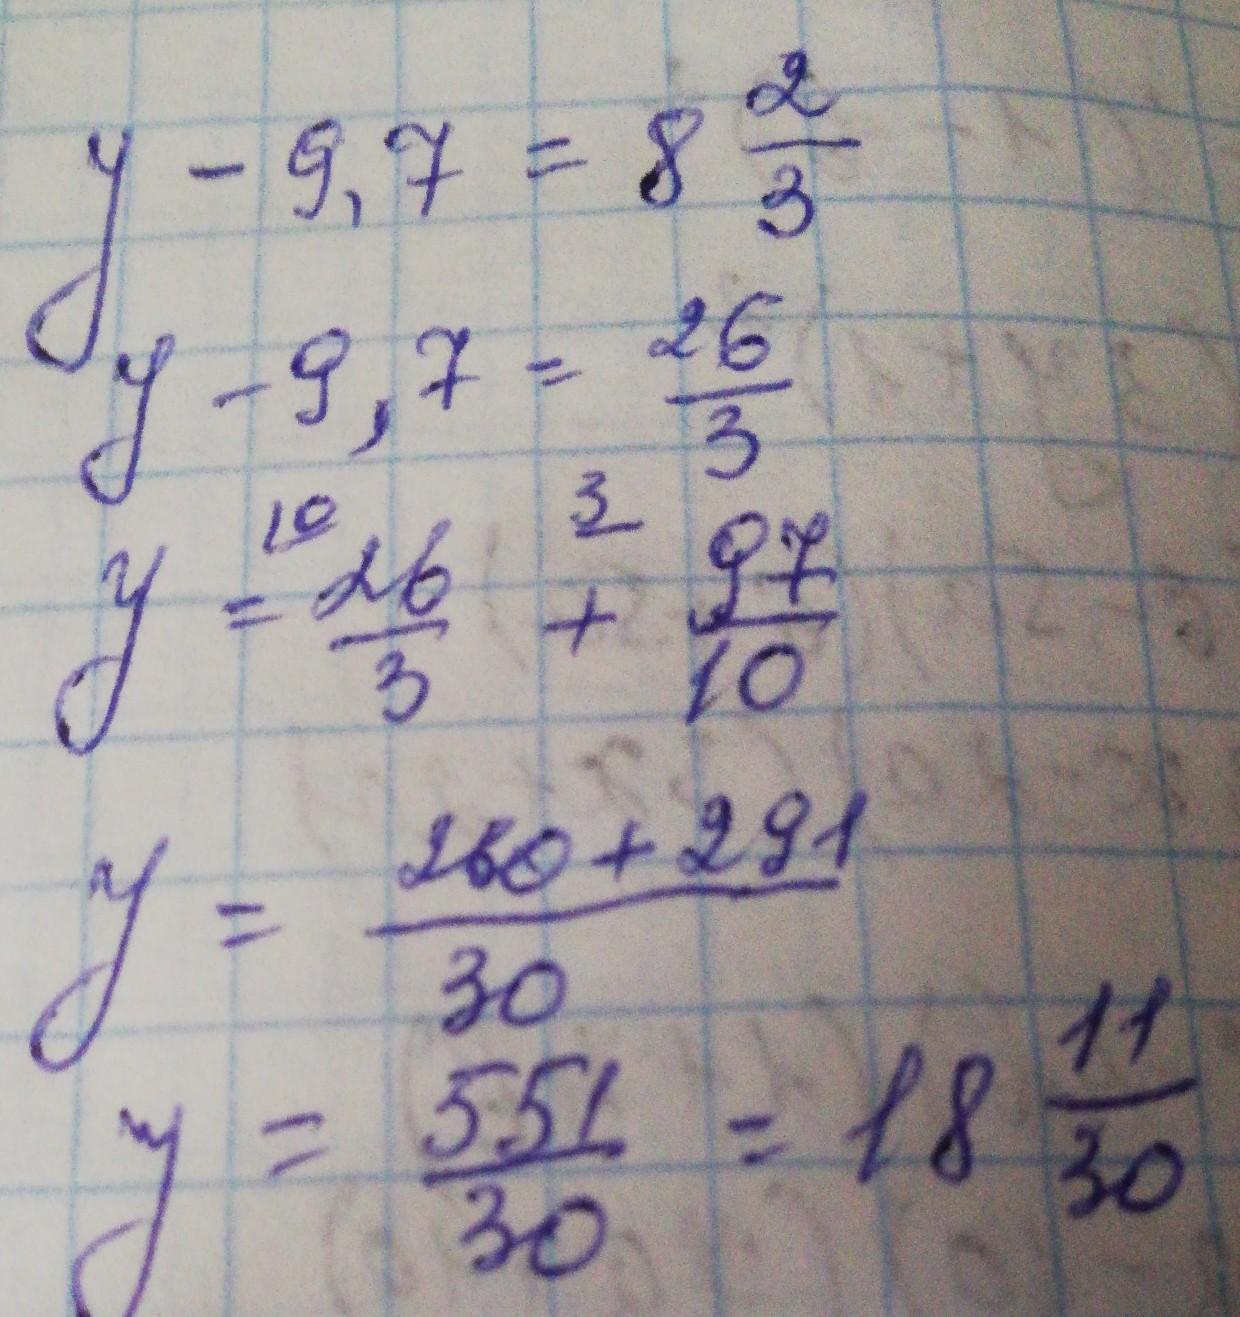 y - 9,7 = 8 2/3
y - 9,7 = 26/3
y = 10 26/3 + 3 97/10
y = 260 + 291 / 30
y = 551/30 = 18 11/30